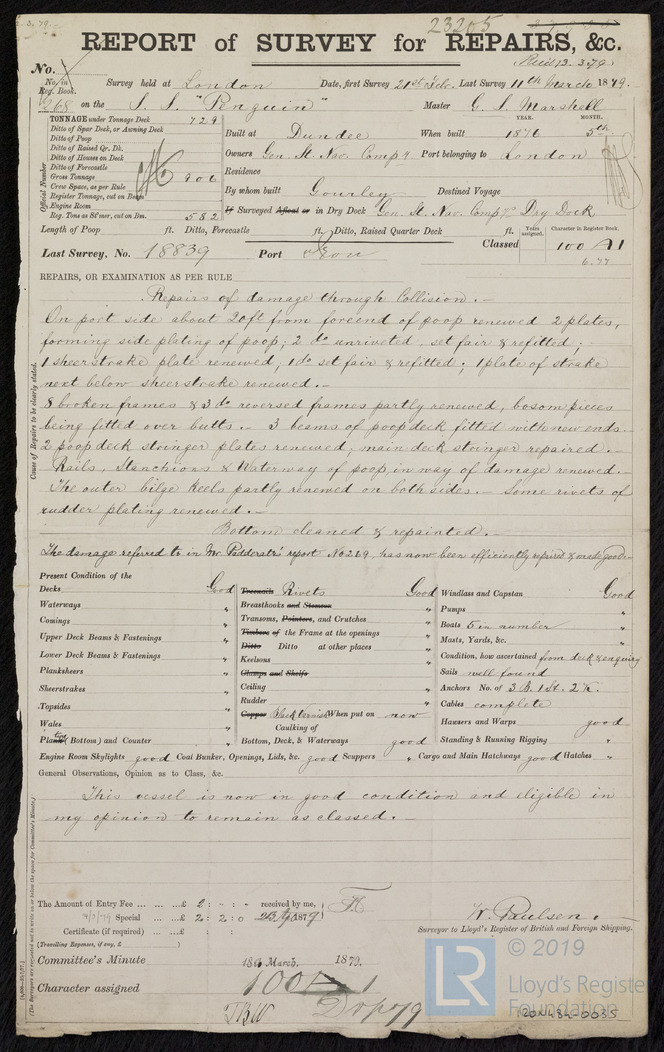 23205
REPORT of SURVEY for REPAIRS, &c.
Recd 13.3.79
No.
No. in Reg. Book. Survey held at London Date, first Survey 21st Feb. Last Survey 11th March 1879.
268 on the S. S. "Penguin" Master G. S. Marshall
TONNAGE under Tonnage Deck 729
Ditto of Spar Deck, or Awning Deck
Ditto of Poop
Ditto of Raised Qr. Dk.
Ditto of Houses on Deck
Ditto of Forecastle
Gross Tonnage 906
Crew Space, as per Rule
Register Tonnage, cut on Beam
Engine Room
Reg. Tons as St'mer, cut on Bm. 582
Official Number
YEAR. MONTH.
Built at Dundee When built 1876 5th
Owners Gen. St. Nav. Compy. Port belonging to London
Residence
By whom built Gourley Destined Voyage
If Surveyed Afloat or in Dry Dock Gen. St. Nav. Compy's Dry Dock
Length of Poop ft. Ditto, Forecastle ft. Ditto, Raised Quarter Deck ft.
Last Survey, No. 18839 Port Lon
Classed Years assigned. Character in Register Book.
100 A 1
6.77
REPAIRS, OR EXAMINATION AS PER RULE
Cause of Repairs to be clearly stated.
Repairs of damage through Collision. -
On port side about 20ft from fore end of poop renewed 2 plates,
forming side plating of poop; 2 do unriveted, set fair & refitted; -
1 sheerstrake plate renewed, 1 do set fair & refitted; 1 plate of strake
next below sheerstrake renewed. -
8 broken frames & 3 do reversed frames partly renewed, bosom pieces
being fitted over butts. - 3 beams of poop deck fitted with new ends.
2 poop deck stringer plates renewed, main deck stringer repaired. -
Rails, Stanchions & Waterway of poop, in way of damage renewed.
The outer bilge keels partly renewed on both sides. - Some rivets of
rudder plating renewed. -
Bottom cleaned & repainted. -
The damage referred to in Mr. report No 269, has now been efficiently repaired & made good -
Present Condition of the
Decks Good
Waterways "
Comings "
Upper Deck Beams & Fastenings "
Lower Deck Beams & Fastenings "
Planksheers "
Sheerstrakes "
Topsides "
Wales "
Plating (Bottom) and Counter "
Treenails Rivets Good
Breasthooks and Stemson "
Transoms, Pointers, and Crutches "
Timbers of the Frame at the openings "
Ditto Ditto at other places "
Keelsons "
Clamps and Shelfs
Ceiling "
Rudder "
Copper Black Varnish When put on now
Caulking of
Bottom, Deck, & Waterways good
Windlass and Capstan Good
Pumps "
Boats 5 in number "
Masts, Yards, &c. "
Condition, how ascertained from deck & enquiry
Sails well found
Anchors No. of 3 B. 1 St. 2 K.
Cables complete
Hawsers and Warps good
Standing & Running Rigging "
Engine Room Skylights good Coal Bunker, Openings, Lids, &c. good Scuppers " Cargo and Main Hatchways good Hatches "
General Observations, Opinion as to Class, &c.
This vessel is now in good condition and eligible in
my opinion to remain as classed. -
The Amount of Entry Fee £ : : received by me,
Special £ 2 : 2 : 0 1879
Certificate (if required) £ :
(Travelling Expenses, if any, £ )
W. Paulsen
Surveyor to Lloyd's Register of British and Foreign Shipping.
Committee's Minute 18th March. 1879.
Character assigned 100 A 1
LR
© 2019
Lloyd's Register
Foundation
LON484-0035